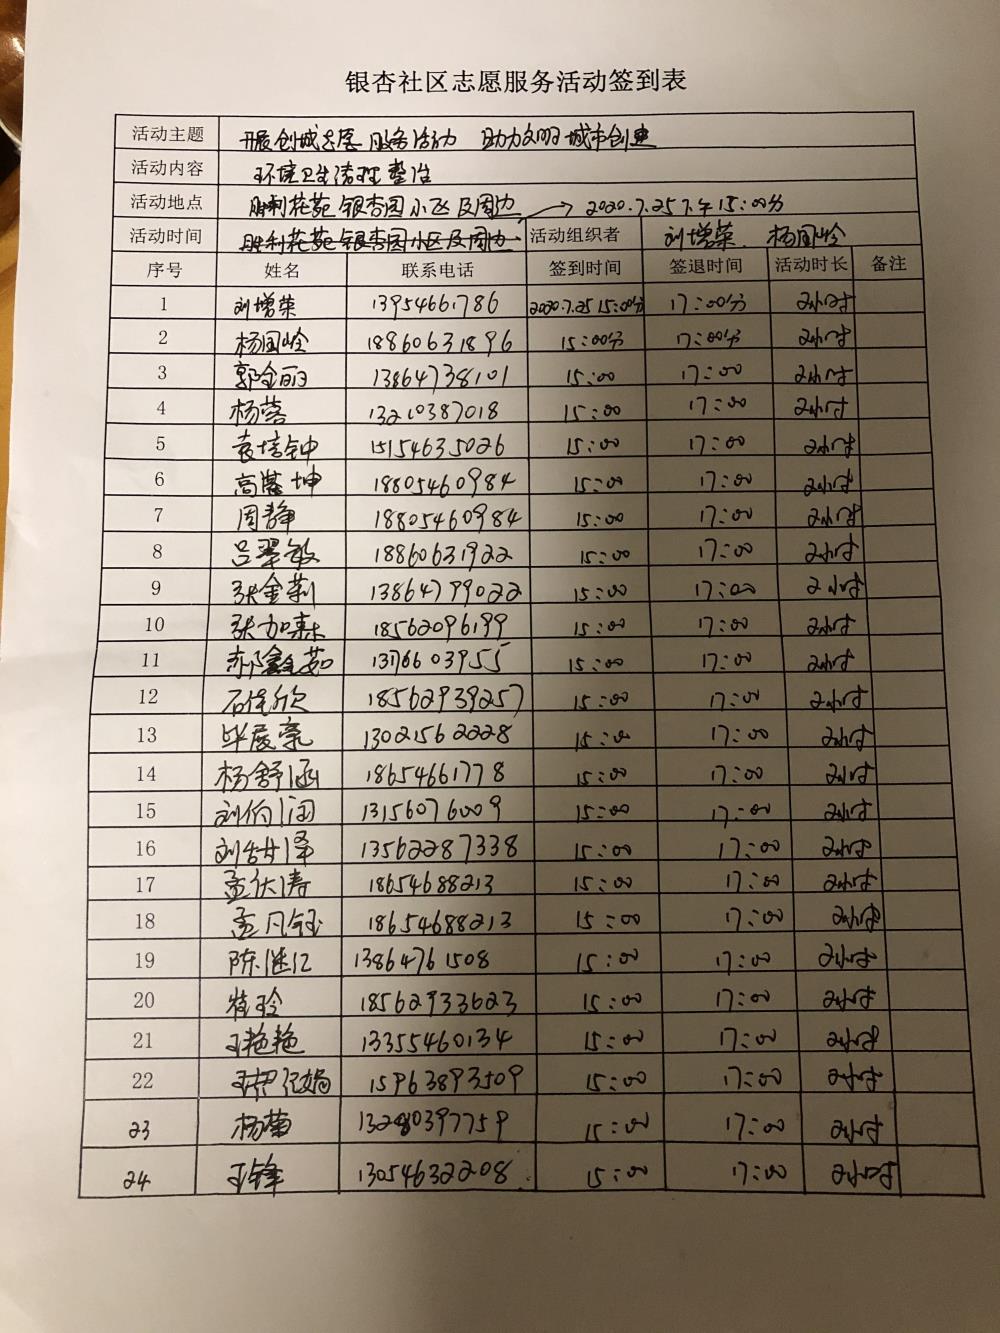 银杏社区志愿服务活动签到表
活动主题 开展创城志愿服务活动 助力文明城市创建
活动内容 环境卫生清理整治
活动地点 胜利花苑银杏园小区及周边 → 2020.7.25下午15:00分
活动时间 胜利花苑银杏园小区及周边 活动组织者 刘增荣 杨国岭
序号 姓名 联系电话 签到时间 签退时间 活动时长 备注
1 刘增荣 13954661786 2020.7.25 15:00分 17:00分 2小时
2 杨国岭 18860631896 15:00分 17:00分 2小时
3 郭金丽 13864738101 15:00 17:00 2小时
4 杨蕊 13210387018 15:00 17:00 2小时
5 袁培钟 15154635026 15:00 17:00 2小时
6 高 坤 18805460984 15:00 17:00 2小时
7 周静 18805460984 15:00 17:00 2小时
8 吕翠敏 18860631922 15:00 17:00 2小时
9 张金莉 13864799022 15:00 17:00 2小时
10 张加 18562096199 15:00 17:00 2小时
11 郝鑫茹 1376603955 15:00 17:00 2小时
12 石佳欣 18562939257 15:00 17:00 2小时
13 毕 豪 13021562228 15:00 17:00 2小时
14 杨舒涵 18654661778 15:00 17:00 2小时
15 刘 13156076009 15:00 17:00 2小时
16 刘 泽 13562287338 15:00 17:00 2小时
17 孟庆涛 18654688213 15:00 17:00 2小时
18 孟凡钰 18654688213 15:00 17:00 2小时
19 陈继仁 13864761508 15:00 17:00 2小时
20 玲 18562933623 15:00 17:00 2小时
21 王艳艳 13355460134 15:00 17:00 2小时
22 王 娟 15963893509 15:00 17:00 2小时
23 杨菊 13280397759 15:00 17:00 2小时
24 王锋 13054632208 15:00 17:00 2小时